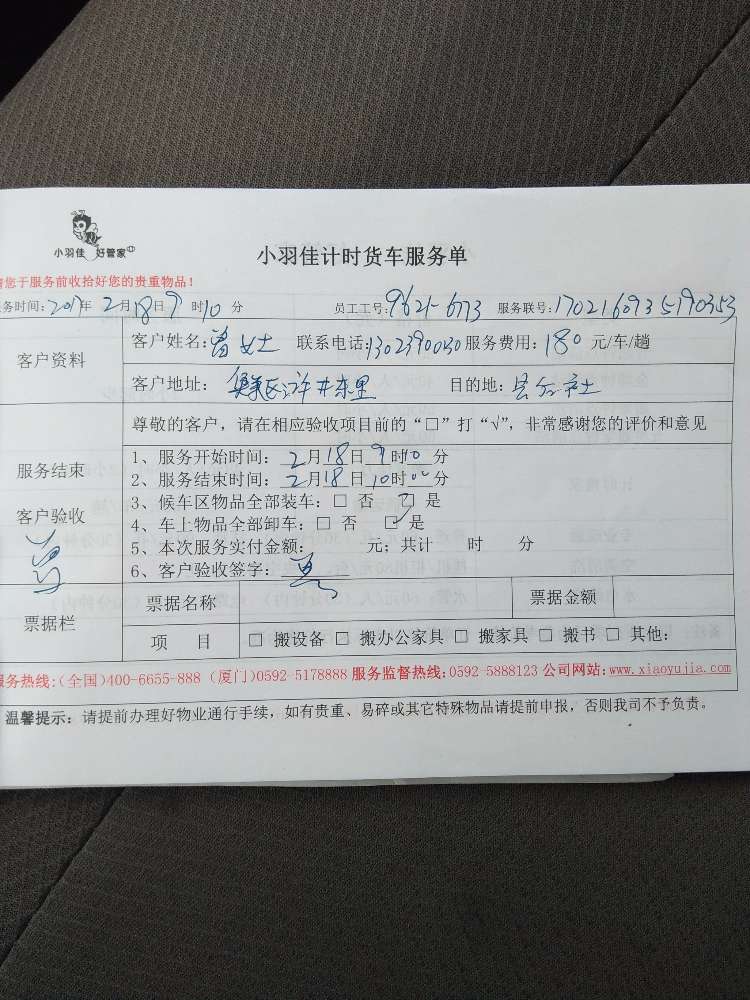 小羽佳 好管家
小羽佳计时货车服务单
请您于服务前收拾好您的贵重物品！
服务时间：2017年 2月18日9时10分 员工工号：9621-6773 服务联号：17021609351
客户资料
客户姓名： 女士 联系电话： 服务费用：180 元/车/趟
客户地址： 目的地：
尊敬的客户，请在相应验收项目前的“□”打“√”，非常感谢您的评价和意见
服务结束
客户验收
1、服务开始时间：2月18日9时10分
2、服务结束时间：2月18日10时00分
3、候车区物品全部装车：□ 否 ☑ 是
4、车上物品全部卸车：□ 否 ☑ 是
5、本次服务实付金额： 元；共计 时 分
6、客户验收签字：
票据栏
票据名称 票据金额
项 目 □ 搬设备 □ 搬办公家具 □ 搬家具 □ 搬书 □ 其他：
服务热线：(全国)400-6655-888 (厦门)0592-5178888 服务监督热线：0592-5888123 公司网站：www.xiaoyujia.com
温馨提示：请提前办理好物业通行手续，如有贵重、易碎或其它特殊物品请提前申报，否则我司不予负责。